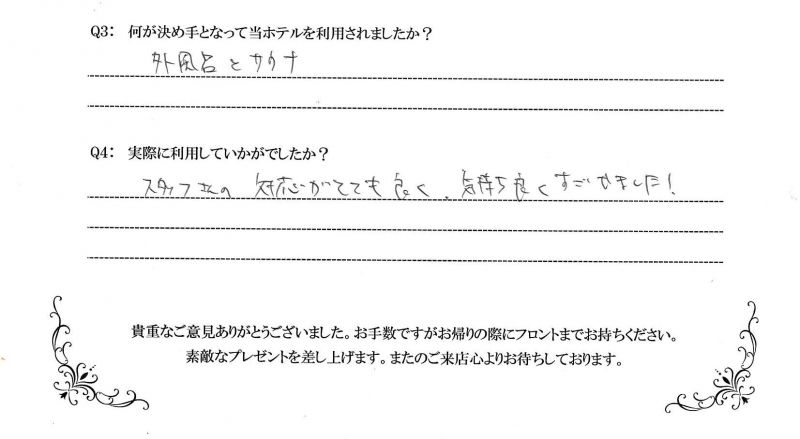 Q3: 何が決め手となって当ホテルを利用されましたか？
外風呂とサウナ
Q4: 実際に利用していかがでしたか？
スタッフさんの対応がとても良く、気持ち良くすごせました！
貴重なご意見ありがとうございました。お手数ですがお帰りの際にフロントまでお持ちください。
素敵なプレゼントを差し上げます。またのご来店心よりお待ちしております。